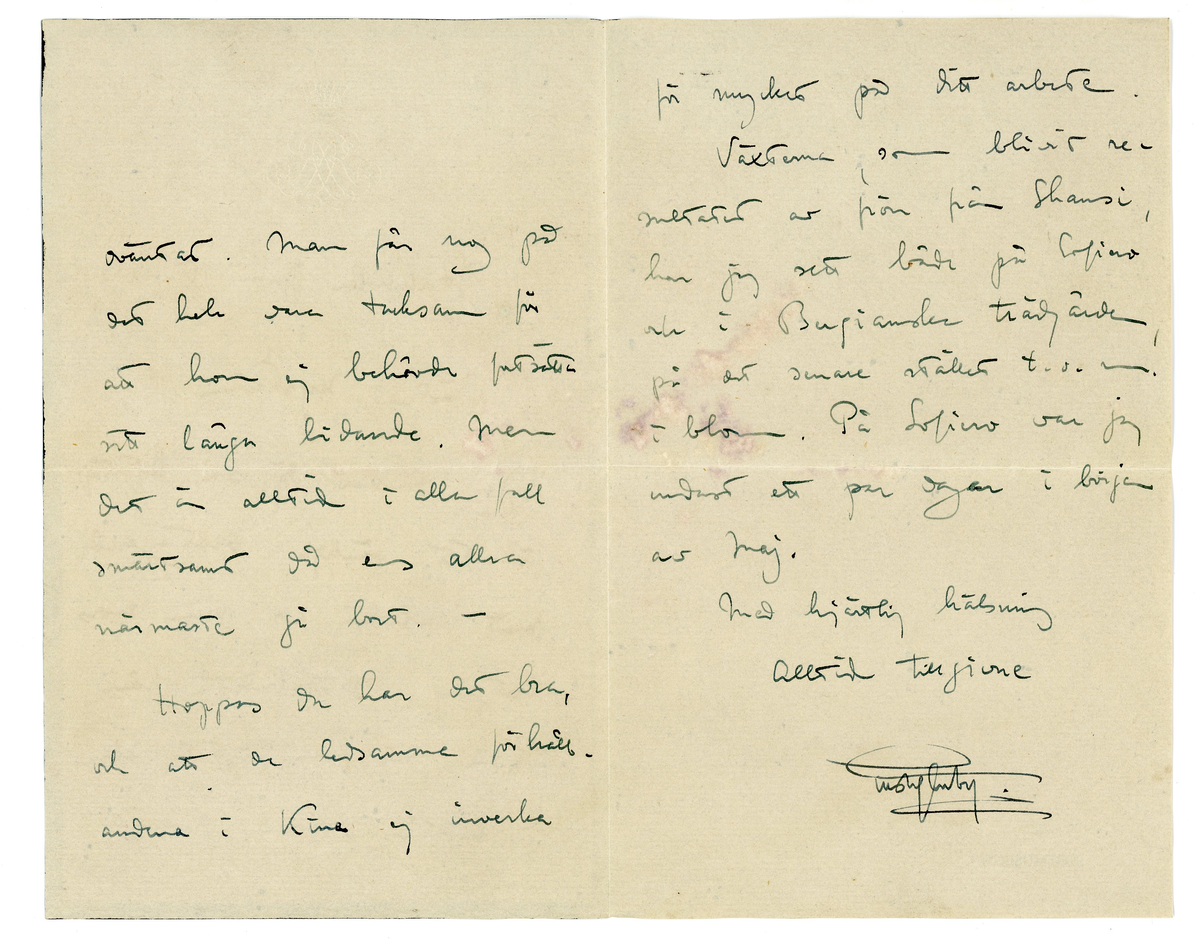 oväntat. Man får nog på
det hela vara tacksam för
att hon ej behövde fortsätta
sitt långa lidande. Men
det är alltid i alla fall
smärtsamt då ens allra
närmaste gå bort. —
Hoppas du har det bra,
och att de ledsamma förhåll-
andena i Kina ej inverka
för mycket på ditt arbete.
Växterna, som blivit re-
sultatet av frön från Shansi,
har jag sett både på Sofiero
och i Bergianska trädgården,
på det senare stället t.o.m.
i blom. På Sofiero var jag
endast ett par dagar i början
av maj.
Med hjärtlig hälsning
Alltid tillgivne